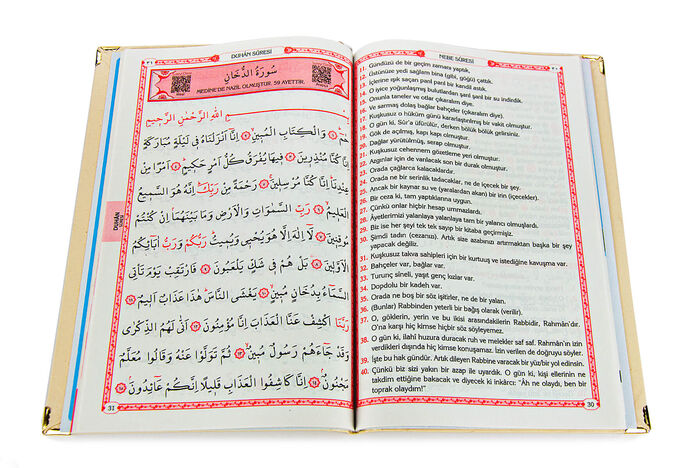 NEBE SÛRESİ
11. Gündüzü de bir geçim zamanı yaptık,
12. Üstünüze yedi sağlam bina (gibi, göğü) çattık.
13. İçlerine ışık saçan parıl parıl bir kandil astık.
14. O iyice yoğunlaşmış bulutlardan şarıl şarıl bir su indirdik.
15. Onunla taneler ve otlar çıkaralım diye.
16. Ve sarmaş dolaş bağlar bahçeler (çıkaralım diye).
17. Kuşkusuz o hüküm günü kararlaştırılmış bir vakit olmuştur.
18. O gün ki, Sûr'a üfürülür, derken bölük bölük gelirsiniz.
19. Gök de açılmış, kapı kapı olmuştur.
20. Dağlar yürütülmüş, serap olmuştur.
21. Kuşkusuz cehennem gözetleme yeri olmuştur.
22. Azgınlar için de varılacak son bir durak olmuştur.
23. Orada çağlarca kalacaklardır.
24. Orada ne bir serinlik tadacaklar, ne de içecek bir şey.
25. Ancak bir kaynar su ve (yaralardan akan) bir irin (içecekler).
26. Bir ceza ki, tam yaptıklarına uygun.
27. Çünkü onlar hiçbir hesap ummazlardı.
28. Âyetlerimizi yalanlaya yalanlaya tam bir yalancı olmuşlardı.
29. Biz ise her şeyi tek tek sayıp bir kitaba geçirmişiz.
30. Şimdi tadın (cezanızı). Artık size azabınızı artırmaktan başka bir şey
yapacak değiliz.
31. Kuşkusuz takva sahipleri için bir kurtuluş ve istediğine kavuşma var.
32. Bahçeler var, bağlar var.
33. Turunç sineli, yaşıt genç kızlar var.
34. Dopdolu bir kadeh var.
35. Orada ne boş bir söz işitirler, ne de bir yalan.
36. (Bunlar) Rabbinden yeterli bir bağış olarak (verilir).
37. O, göklerin, yerin ve bu ikisi arasındakilerin Rabbidir, Rahmân'dır.
O'na karşı hiç kimse hiçbir söz söyleyemez.
38. O gün ki, ilahî huzura duracak ruh ve melekler saf saf. Rahman'ın izin
verdikleri dışında hiç kimse konuşamaz. İzin verilen de doğruyu söyler.
39. İşte bu hak gündür. Artık dileyen Rabbine varacak bir yüz/bir yol edinsin.
40. Çünkü biz sizi yakın bir azap ile uyardık. O gün ki, kişi ellerinin ne
takdim ettiğine bakacak ve diyecek ki inkârcı: "Âh ne olaydı, ben bir
toprak olaydım!"
30
DUHÂN SÛRESİ
٣١
سُورَةُ الدُّخَانِ
MEDİNE'DE NAZİL OLMUŞTUR. 59 AYETTİR.
اللّٰهِ الرَّحْمٰنِ الرَّحٖيمِ
حٰمٓ وَالْكِتَابِ الْمُبٖينِ اِنَّا اَنْزَلْنَاهُ فٖي لَيْلَةٍ مُبَارَكَةٍ
اِنَّا كُنَّا مُنْذِرٖينَ فٖيهَا يُفْرَقُ كُلُّ اَمْرٍ حَكٖيمٍ اَمْرًا مِنْ
عِنْدِنَا اِنَّا كُنَّا مُرْسِلٖينَ رَحْمَةً مِنْ رَبِّكَ اِنَّهُ هُوَ السَّمٖيعُ
الْعَلٖيمُ رَبِّ السَّمٰوَاتِ وَالْاَرْضِ وَمَا بَيْنَهُمَا اِنْ كُنْتُمْ
مُوقِنٖينَ لَا اِلٰهَ اِلَّا هُوَ يُحْيٖي وَيُمٖيتُ رَبُّكُمْ وَرَبُّ اٰبَائِكُمُ
الْاَوَّلٖينَ بَلْ هُمْ فٖي شَكٍّ يَلْعَبُونَ فَارْتَقِبْ يَوْمَ تَأْتِي
السَّمَاءُ بِدُخَانٍ مُبٖينٍ يَغْشَى النَّاسَ هٰذَا عَذَابٌ اَلٖيمٌ
رَبَّنَا اكْشِفْ عَنَّا الْعَذَابَ اِنَّا مُؤْمِنُونَ اَنّٰى لَهُمُ الذِّكْرٰى
وَقَدْ جَاءَهُمْ رَسُولٌ مُبٖينٌ ثُمَّ تَوَلَّوْا عَنْهُ وَقَالُوا مُعَلَّمٌ
مَجْنُونٌ اِنَّا كَاشِفُوا الْعَذَابِ قَلٖيلًا اِنَّكُمْ عَائِدُونَ
DUHÂN
31